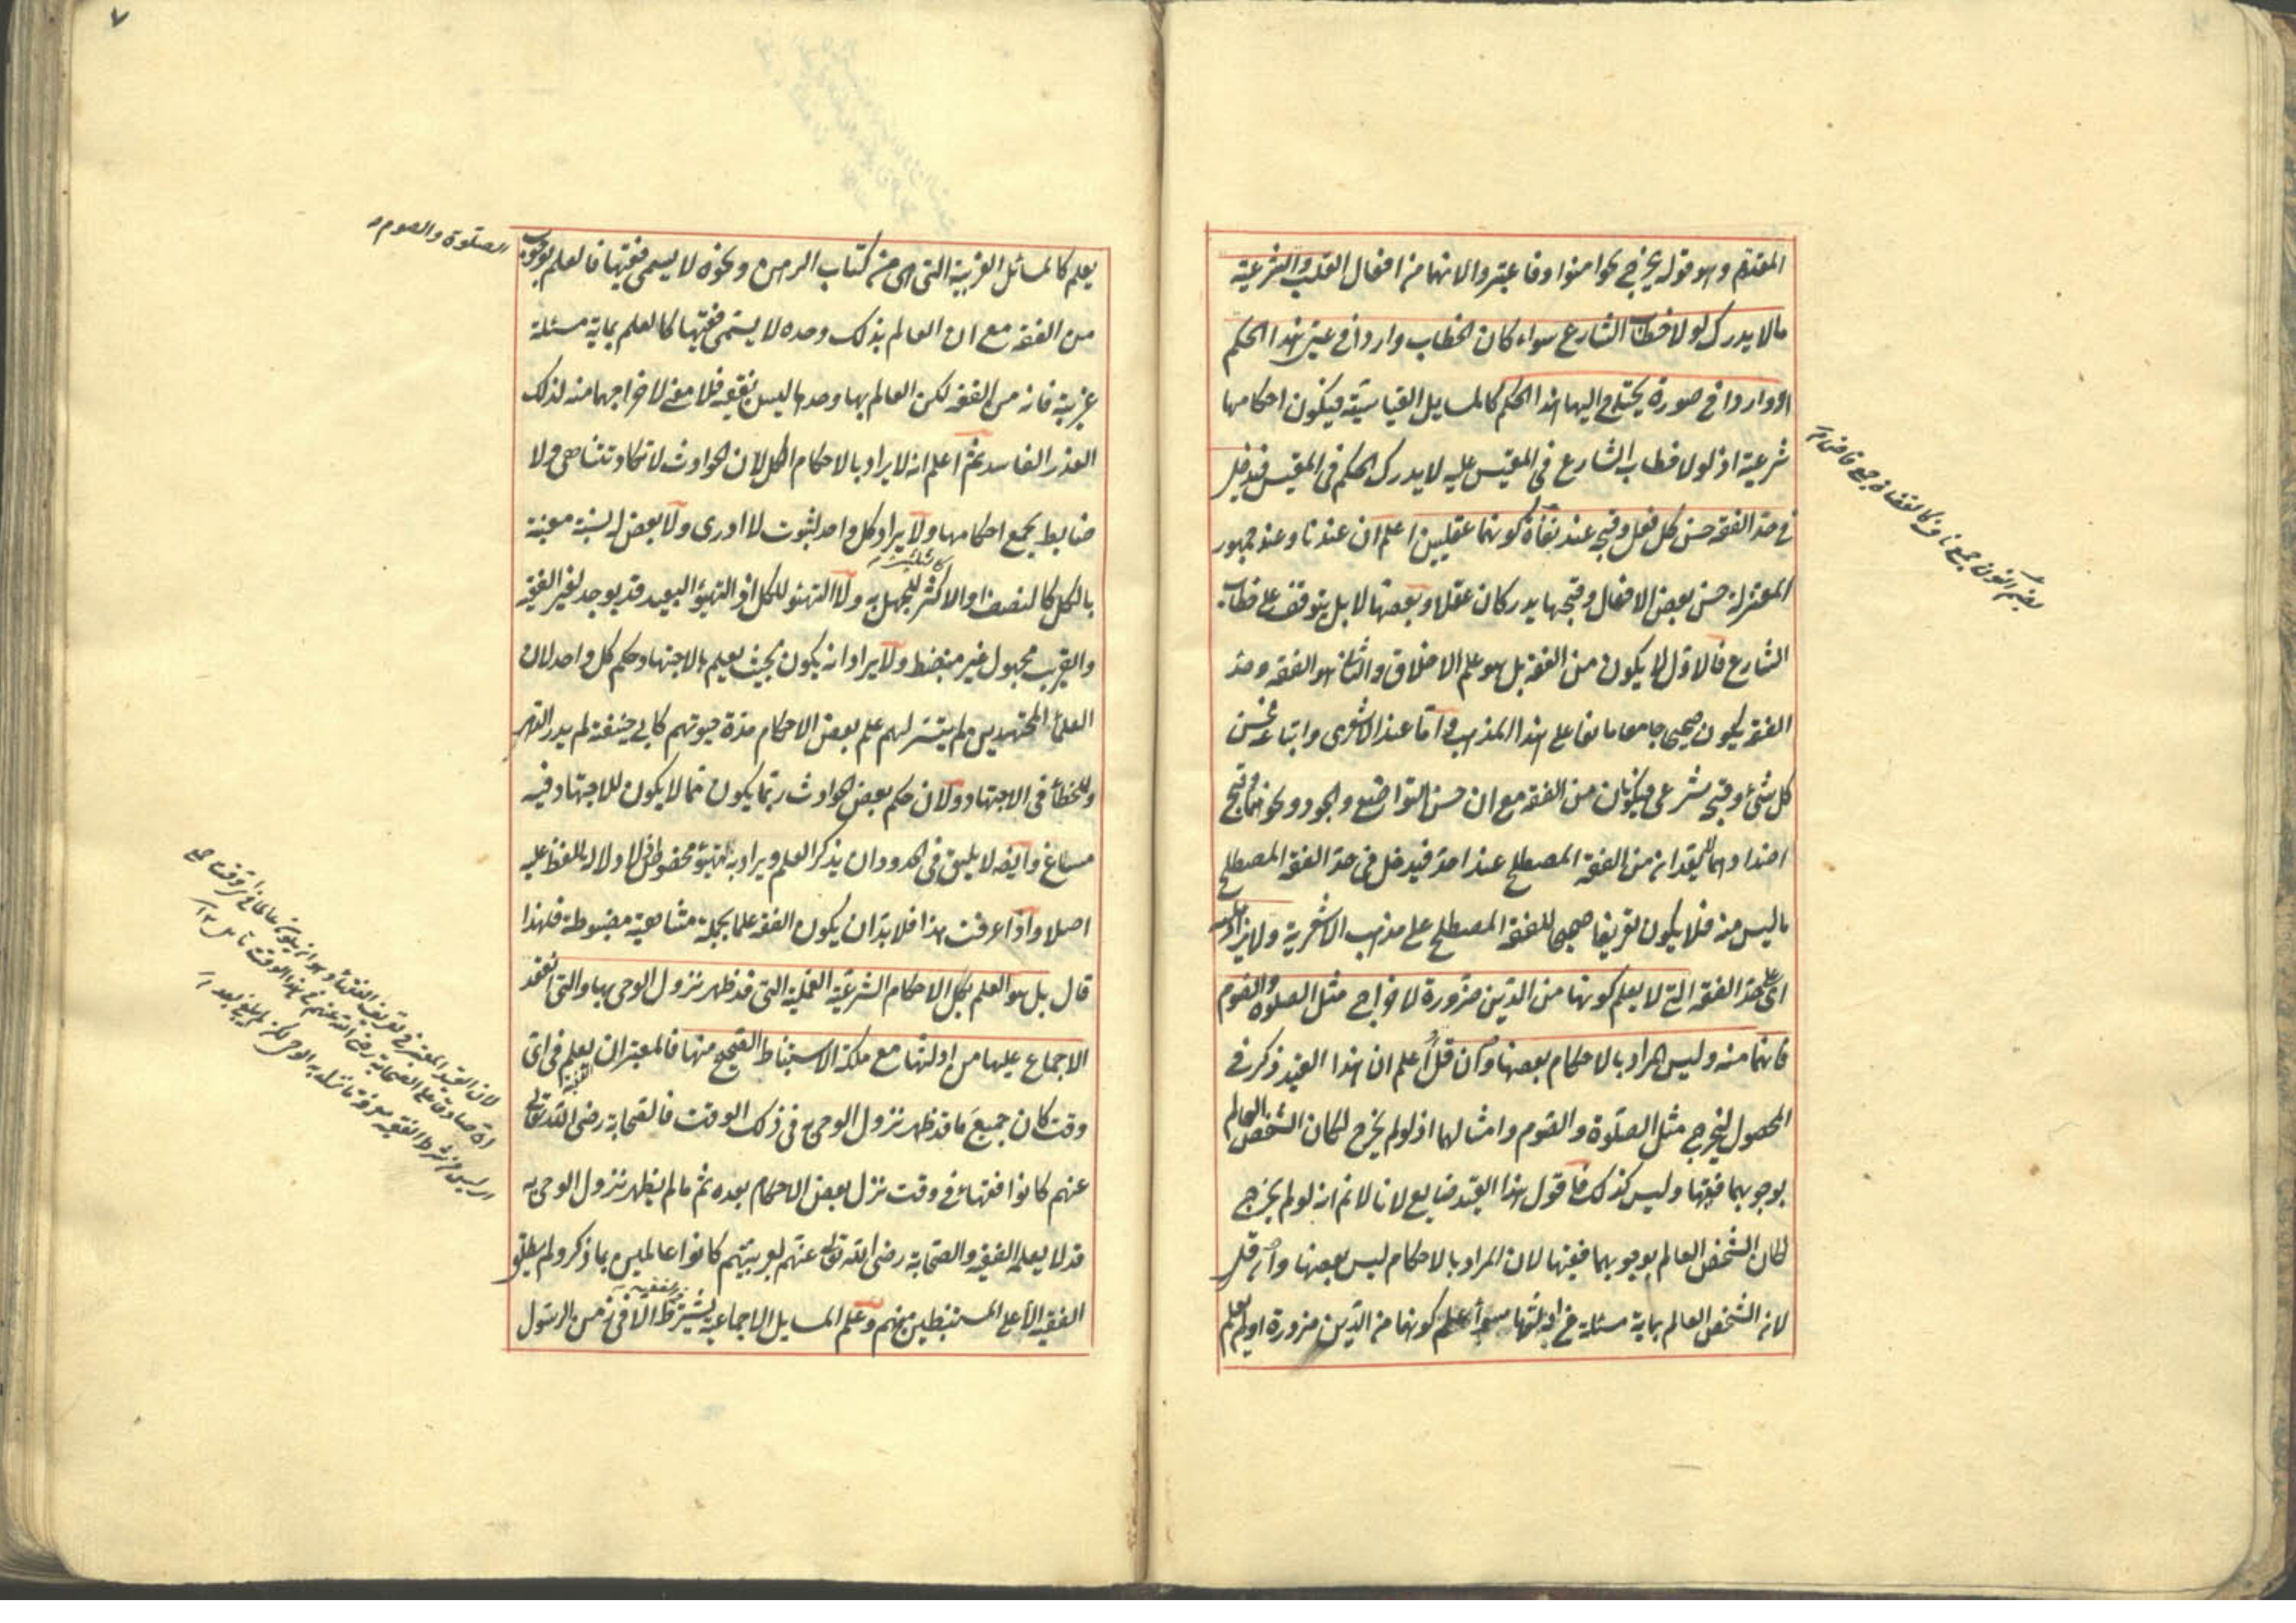 المتقدم وهو قوله يخرج نحو امنوا وفاعتبروا لانهما من افعال القلب والشرعية
مالا يدرك لولا خطاب الشارع سواء كان الخطاب واردا في عين هذا الحكم
او واردا في صورة يحتاج اليها هذا الحكم كالمسايل القياسية فيكون احكامها
شرعية اذ لولا خطاب الشارع في المقيس عليه لا يدرك الحكم في المقيس فيدخل
في حد الفقه حسن كل فعل وقبحه عند نفاة كونهما عقليين اعلم ان عندنا وعند جمهور
المعتزلة حسن بعض الافعال وقبحها يدركان عقلا وبعضها لا بل يتوقف على خطاب
الشارع فالاول لا يكون من الفقه بل هو علم الاخلاق والثاني هو الفقه وحد
الفقه يكون صحيحا جامعا مانعا على هذا المذهب واما عند الاشعرى واتباعه فحسن
كل شئ وقبحه شرعى فيكونان من الفقه مع ان حسن التواضع والجود ونحوهما وقبح
اضدادهما لا يعد انه من الفقه المصطلح عند احد فيدخل في حد الفقه المصطلح
ما ليس منه فلا يكون تعريفا صحيحا للفقه المصطلح على مذهب الاشعرية ولا يزاد عليه
اى على حد الفقه التي لا يعلم كونها من الدين ضرورة لاخراج مثل الصلوة والصوم
فانهما منه وليس المراد بالاحكام بعضها وان قل اعلم ان هذا القيد ذكر في
المحصول ليخرج مثل الصلوة والصوم وامثالهما اذ لو لم يخرج لكان الشخص العالم
بوجوبهما فقيها وليس كذلك فاقول هذا القيد ضايع لانا لانم انه لو لم يخرج
لكان الشخص العالم بوجوبهما فقيها لان المراد بالاحكام ليس بعضها وان قل
لانه الشخص العالم بماية مسئلة من ادلتها سواء علم كونها من الدين ضرورة او لم يعلم
بضم النون جمع ناف كالقضاة جمع قاض
يعلم كالمسائل الغريبة التى هى من كتاب الرهن ونحوه لا يسمى فقيها فالعلم بوجوب
الصلوة والصوم
من الفقه مع ان العالم بذلك وحده لا يسمى فقيها كالعلم بماية مسئلة
غريبة فانه من الفقه لكن العالم بها وحدها ليس بفقيه فلا معنى لاخراجهما منه لذلك
العذر الفاسد ثم اعلم انه لا يراد بالاحكام الكل لان الحوادث لا تكاد تتناهى ولا
ضابط يجمع احكامها ولا يراد كل واحد لثبوت لا ادرى ولا بعض له نسبة معينة
بالكل كالنصف او الاكثر للجهل به ولا التهيؤ للكل اذ التهيؤ البعيد قد يوجد لغير الفقيه
والقريب مجهول غير منضبط ولا يراد انه يكون بحيث يعلم بالاجتهاد حكم كل واحد لان
العلماء المجتهدين لم يتيسر لهم علم بعض الاحكام مدة حيوتهم كابي حنيفة لم يدر الدهر
وللخطأ في الاجتهاد ولان حكم بعض الحوادث ربما يكون مما لا يكون للاجتهاد فيه
مساغ وايضا لا يليق في الحدود ان يذكر العلم ويراد به تهيؤ مخصوص لا دلالة للفظ عليه
اصلا واذا عرفت هذا فلا بد ان يكون الفقه علما بجملة متناهية مضبوطة فلهذا
قال بل هو العلم بكل الاحكام الشرعية العملية التى قد ظهر نزول الوحى بها والتى انعقد
الاجماع عليها من ادلتها مع ملكة الاستنباط الصحيح منها فالمعتبر ان يعلم فى اى
وقت كان جميع ما قد ظهر نزول الوحى به فى ذلك الوقت فالصحابة رضى الله تعالى
عنهم كانوا فقهاء في وقت نزل بعض الاحكام بعده ثم ما لم يظهر نزول الوحى به
قد لا يعلمه الفقيه والصحابة رضى الله تعالى عنهم لعربيتهم كانوا عالمين بما ذكر ولم يطلق
الفقيه الا على المستنبطين منهم وعلم المسايل الاجماعية يشترط الا فى زمن الرسول